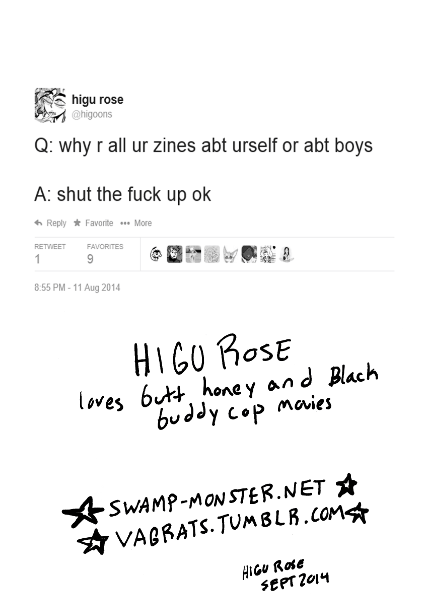 higu rose
@higoons
Q: why r all ur zines abt urself or abt boys
A: shut the fuck up ok
Reply Favorite ••• More
RETWEET FAVORITES
1 9
8:55 PM - 11 Aug 2014
HIGU ROSE
loves butt honey and Black
buddy cop movies
SWAMP-MONSTER.NET
VAGRATS.TUMBLR.COM
HIGU ROSE
SEPT 2014